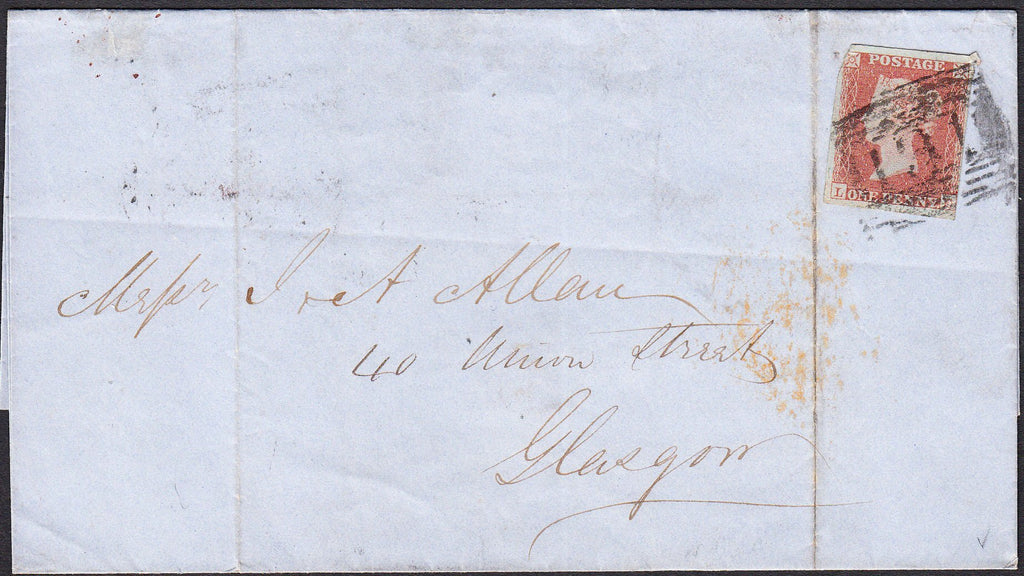 POSTAGE
L ONE PENNY
Messrs J & A Allan
40 Union Street
Glasgow